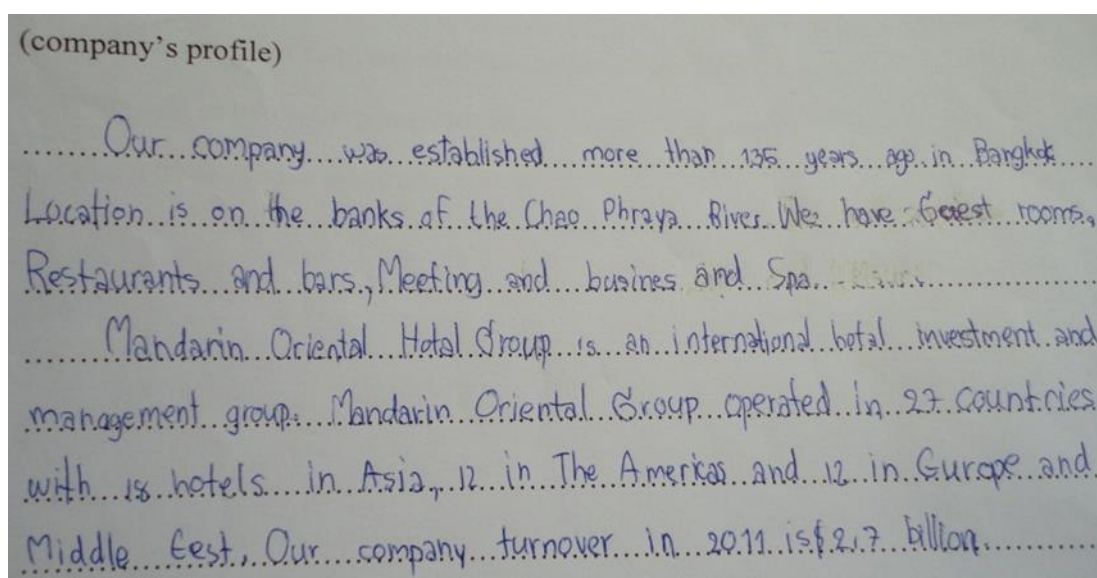 (company's profile)
Our company was established more than 135 years ago in Bangkok
Location is on the banks of the Chao Phraya River. We have Guest rooms,
Restaurants and bars, Meeting and busines and Spa.
Mandarin Oriental Hotal Group is an international hotal investment and
management group. Mandarin Oriental Group operated in 27 countries
with 18 hotels in Asia, 12 in The Americas and 12 in Europe and
Middle Eest, Our company turnover in 2011 is $ 2,7 billion.